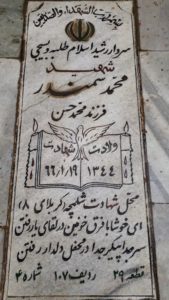 بسم رب الشهداء والصدیقین
سردار رشید اسلام طلبه بسیجی
شهید
محمد سمندر
فرزند محمدحسن
ولادت شهادت
۱۳۴۴ ۶۶/۱/۱۹
محل شهادت شلمچه کربلای ۸
ای خوشا با فرق خونین در لقای یار رفتن
سر جدا پیکر جدا در محفل دلدار رفتن
قطعه ۲۹ ردیف ۱۰۷ شماره ۴